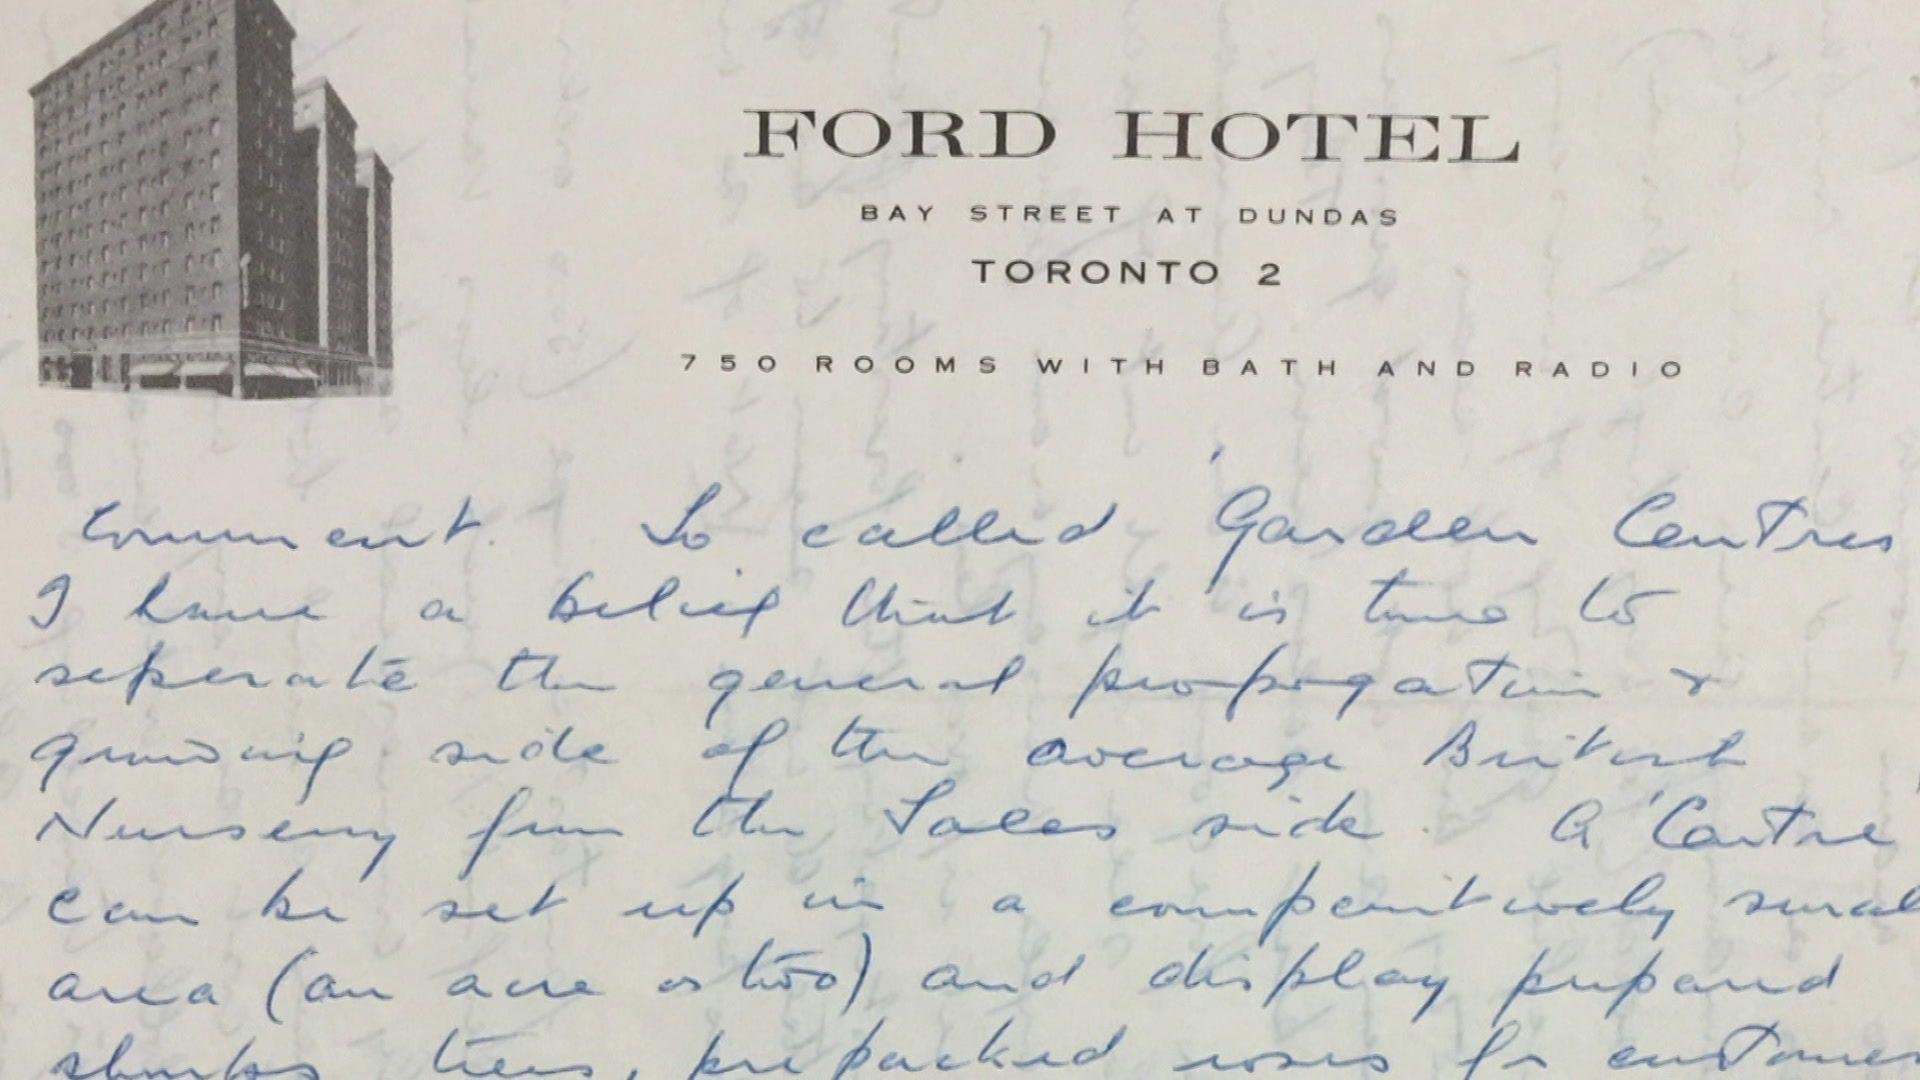 FORD HOTEL
BAY STREET AT DUNDAS
TORONTO 2
750 ROOMS WITH BATH AND RADIO
Comment. So called 'Garden Centres
I have a belief that it is time to
seperate the general propogation &
growing side of the average British
Nursery from the Sales side. A 'Centre'
can be set up in a comparitively small
area (an acre or two) and display prepared
shrubs trees, prepacked roses for customer